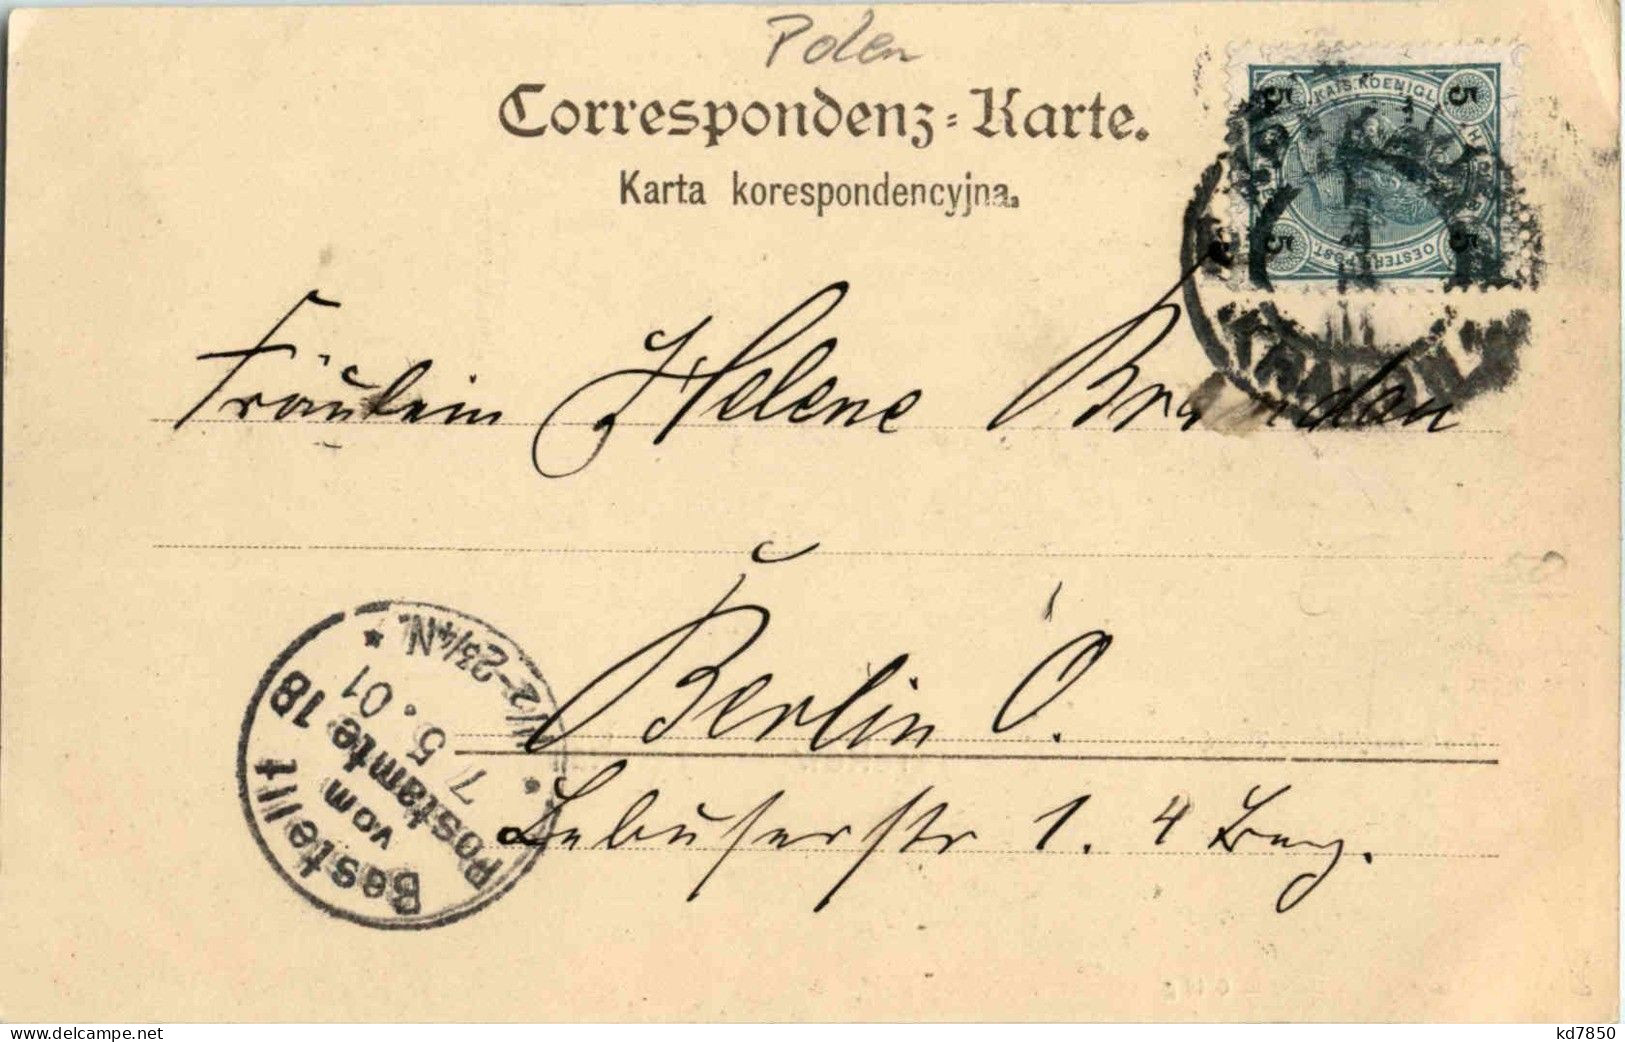 Polen
Correspondenz-Karte.
Karta korespondencyjna.
KAIS. KOENIGL.
5 5
OESTERR. POST.
5 5
KRAKÓW
Fräulein Helene
Berlin O.
Lebuserstr 1. 4
Bestellt
vom
Postamte 18
7 5. 01
1 1/2-2 3/4 N.
www.delcampe.net
kd7850